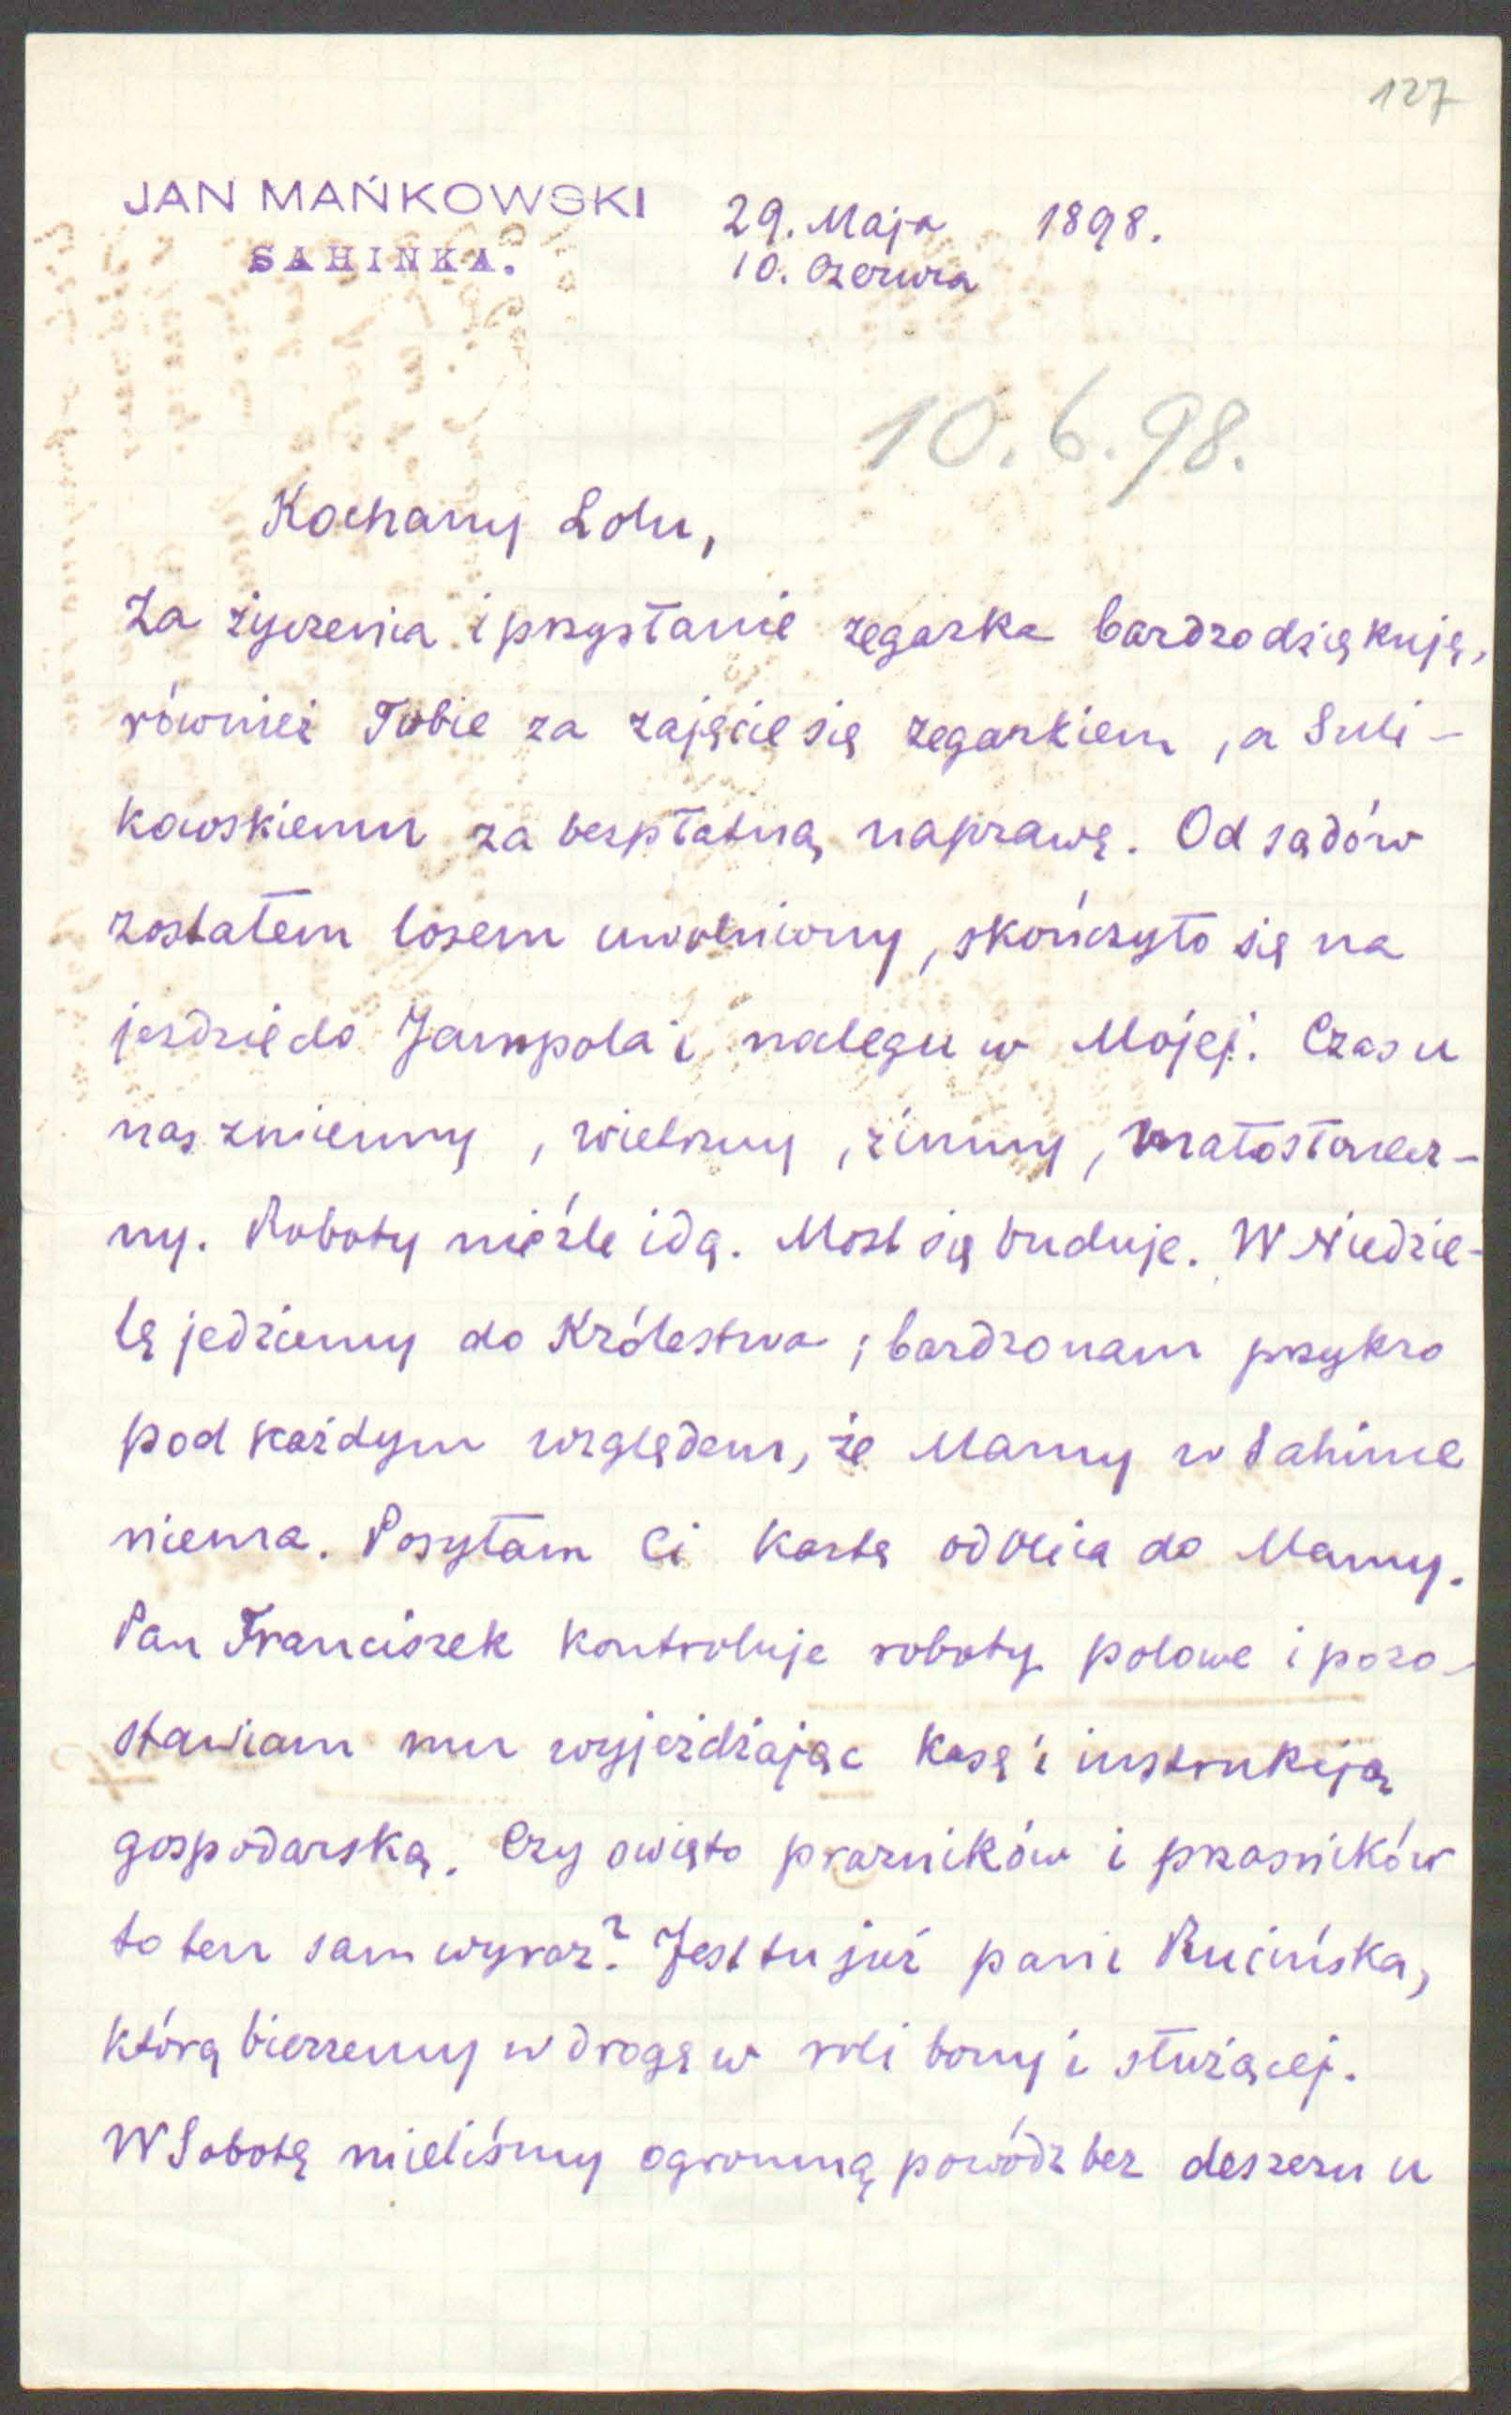 127
JAN MAŃKOWSKI
SAHINKA.
29. Maja 1898.
10. Czerwca
10.6.98.
Kochany Lolu,
Za życzenia i przysłanie zegarka bardzo dziękuję,
również Tobie za zajęcie się zegarkiem, a Suli-
kowskiemu za bezpłatną naprawę. Od sądów
zostałem losem uwolniony, skończyło się na
jeździe do Jampola i nolegu w Mojej. Czas u
nas zmienny, wietrzny, zimny, małosłonecz-
ny. Roboty nieźle idą. Most się buduje. W Niedzie-
lę jedziemy do Królestwa; bardzo nam przykro
pod każdym względem, że Mamy w Sahince
niema. Posyłam Ci kartę od Olica do Mamy.
Pan Franciszek kontroluje roboty polowe i pozo-
stawiam mu wyjeżdżając kasę i instrukcją
gospodarską. Czy święto prazników i przaśników
to ten sam wyraz? Jest tu już pani Rucińska,
którą bierzemy w drogę w roli bony i służącej.
W Sobotę mieliśmy ogromną powódź bez deszczu u